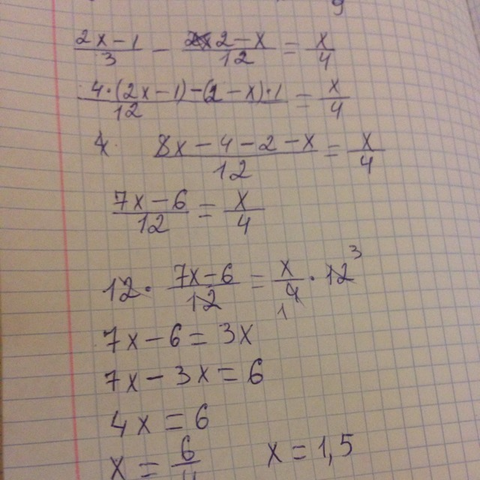 (2x-1)/3 - (2-x)/12 = x/4
(4·(2x-1)-(2-x)·1)/12 = x/4
(8x-4-2-x)/12 = x/4
(7x-6)/12 = x/4
12· (7x-6)/12 = x/4 · 12 3 1
7x-6=3x
7x-3x=6
4x=6
x=6/4 x=1,5